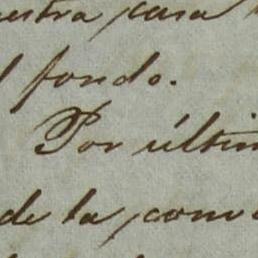 uestra para
l fondo.
Por últim
de la conv